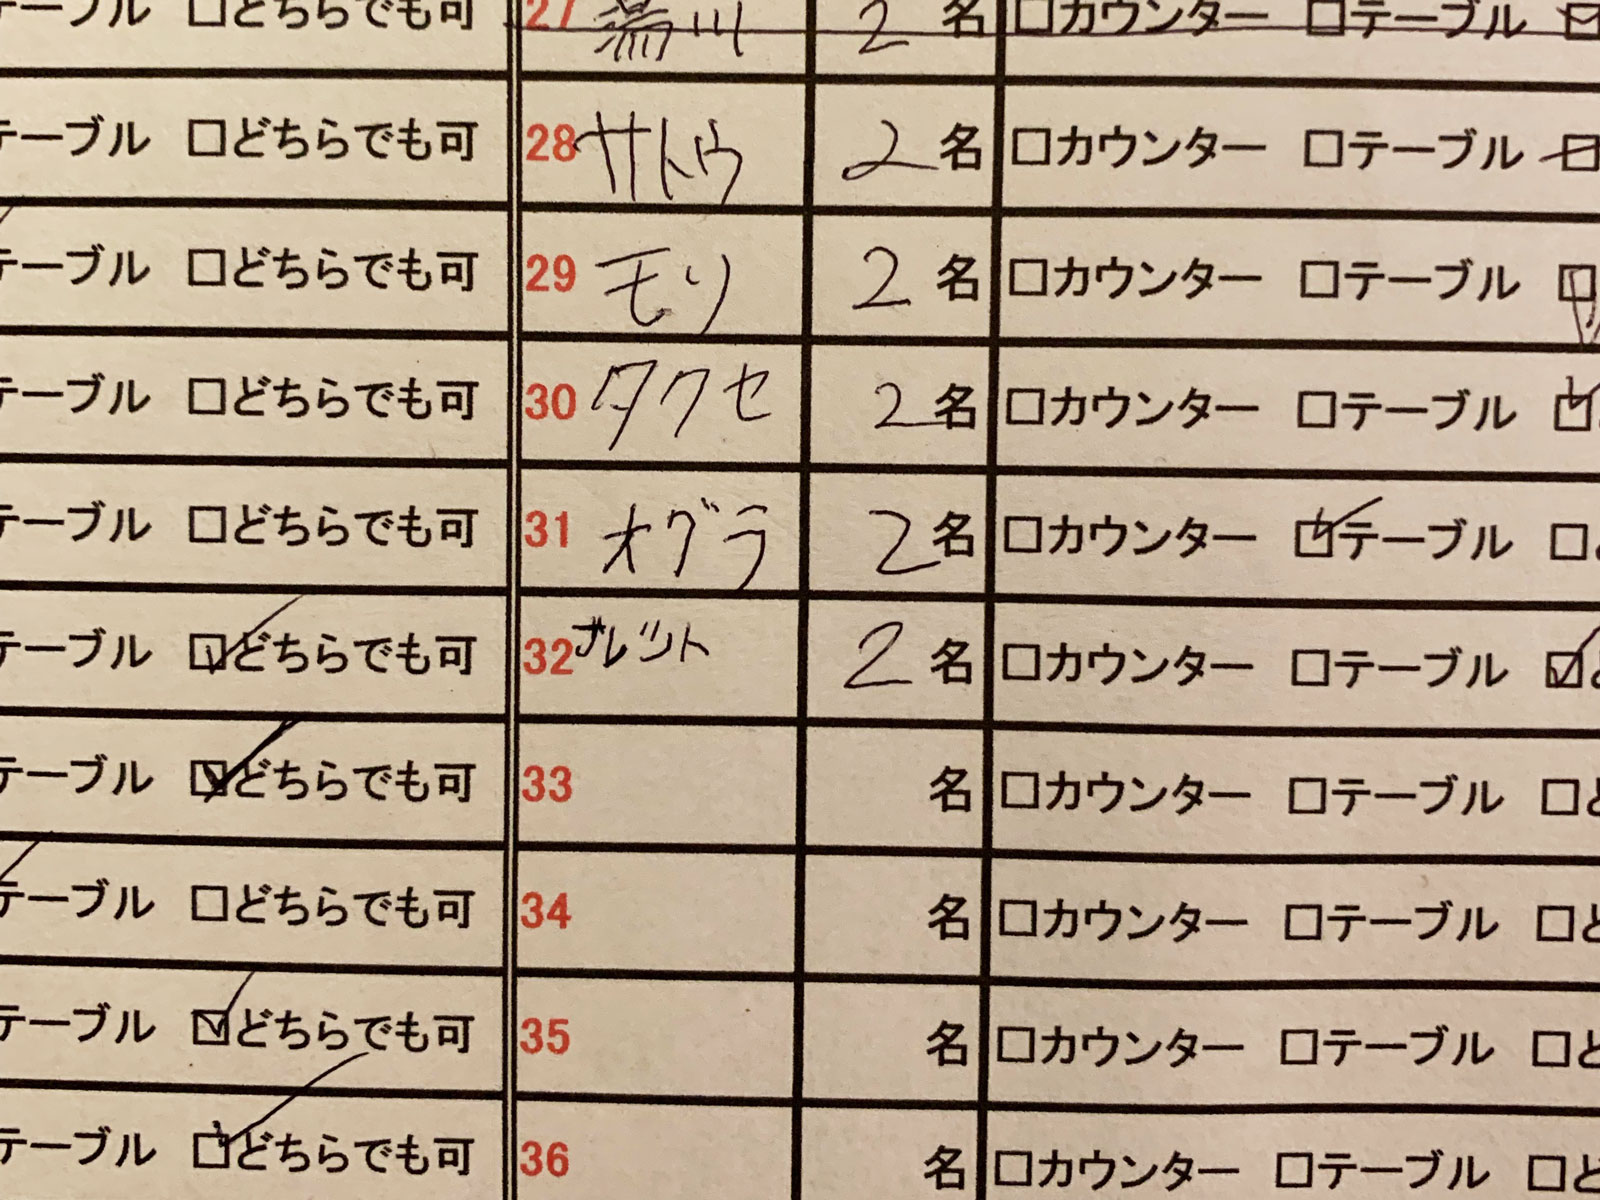 テーブル □どちらでも可 27 湯川 2 名 □カウンター □テーブル
テーブル □どちらでも可 28 サトウ 2 名 □カウンター □テーブル
テーブル □どちらでも可 29 モリ 2 名 □カウンター □テーブル
テーブル □どちらでも可 30 タクセ 2 名 □カウンター □テーブル
テーブル □どちらでも可 31 オグラ 2 名 □カウンター ☑テーブル □
テーブル ☑どちらでも可 32 ブレット 2 名 □カウンター □テーブル ☑ど
テーブル ☑どちらでも可 33 名 □カウンター □テーブル □ど
テーブル □どちらでも可 34 名 □カウンター □テーブル □ど
テーブル ☑どちらでも可 35 名 □カウンター □テーブル □ど
テーブル ☑どちらでも可 36 名 □カウンター □テーブル □ど